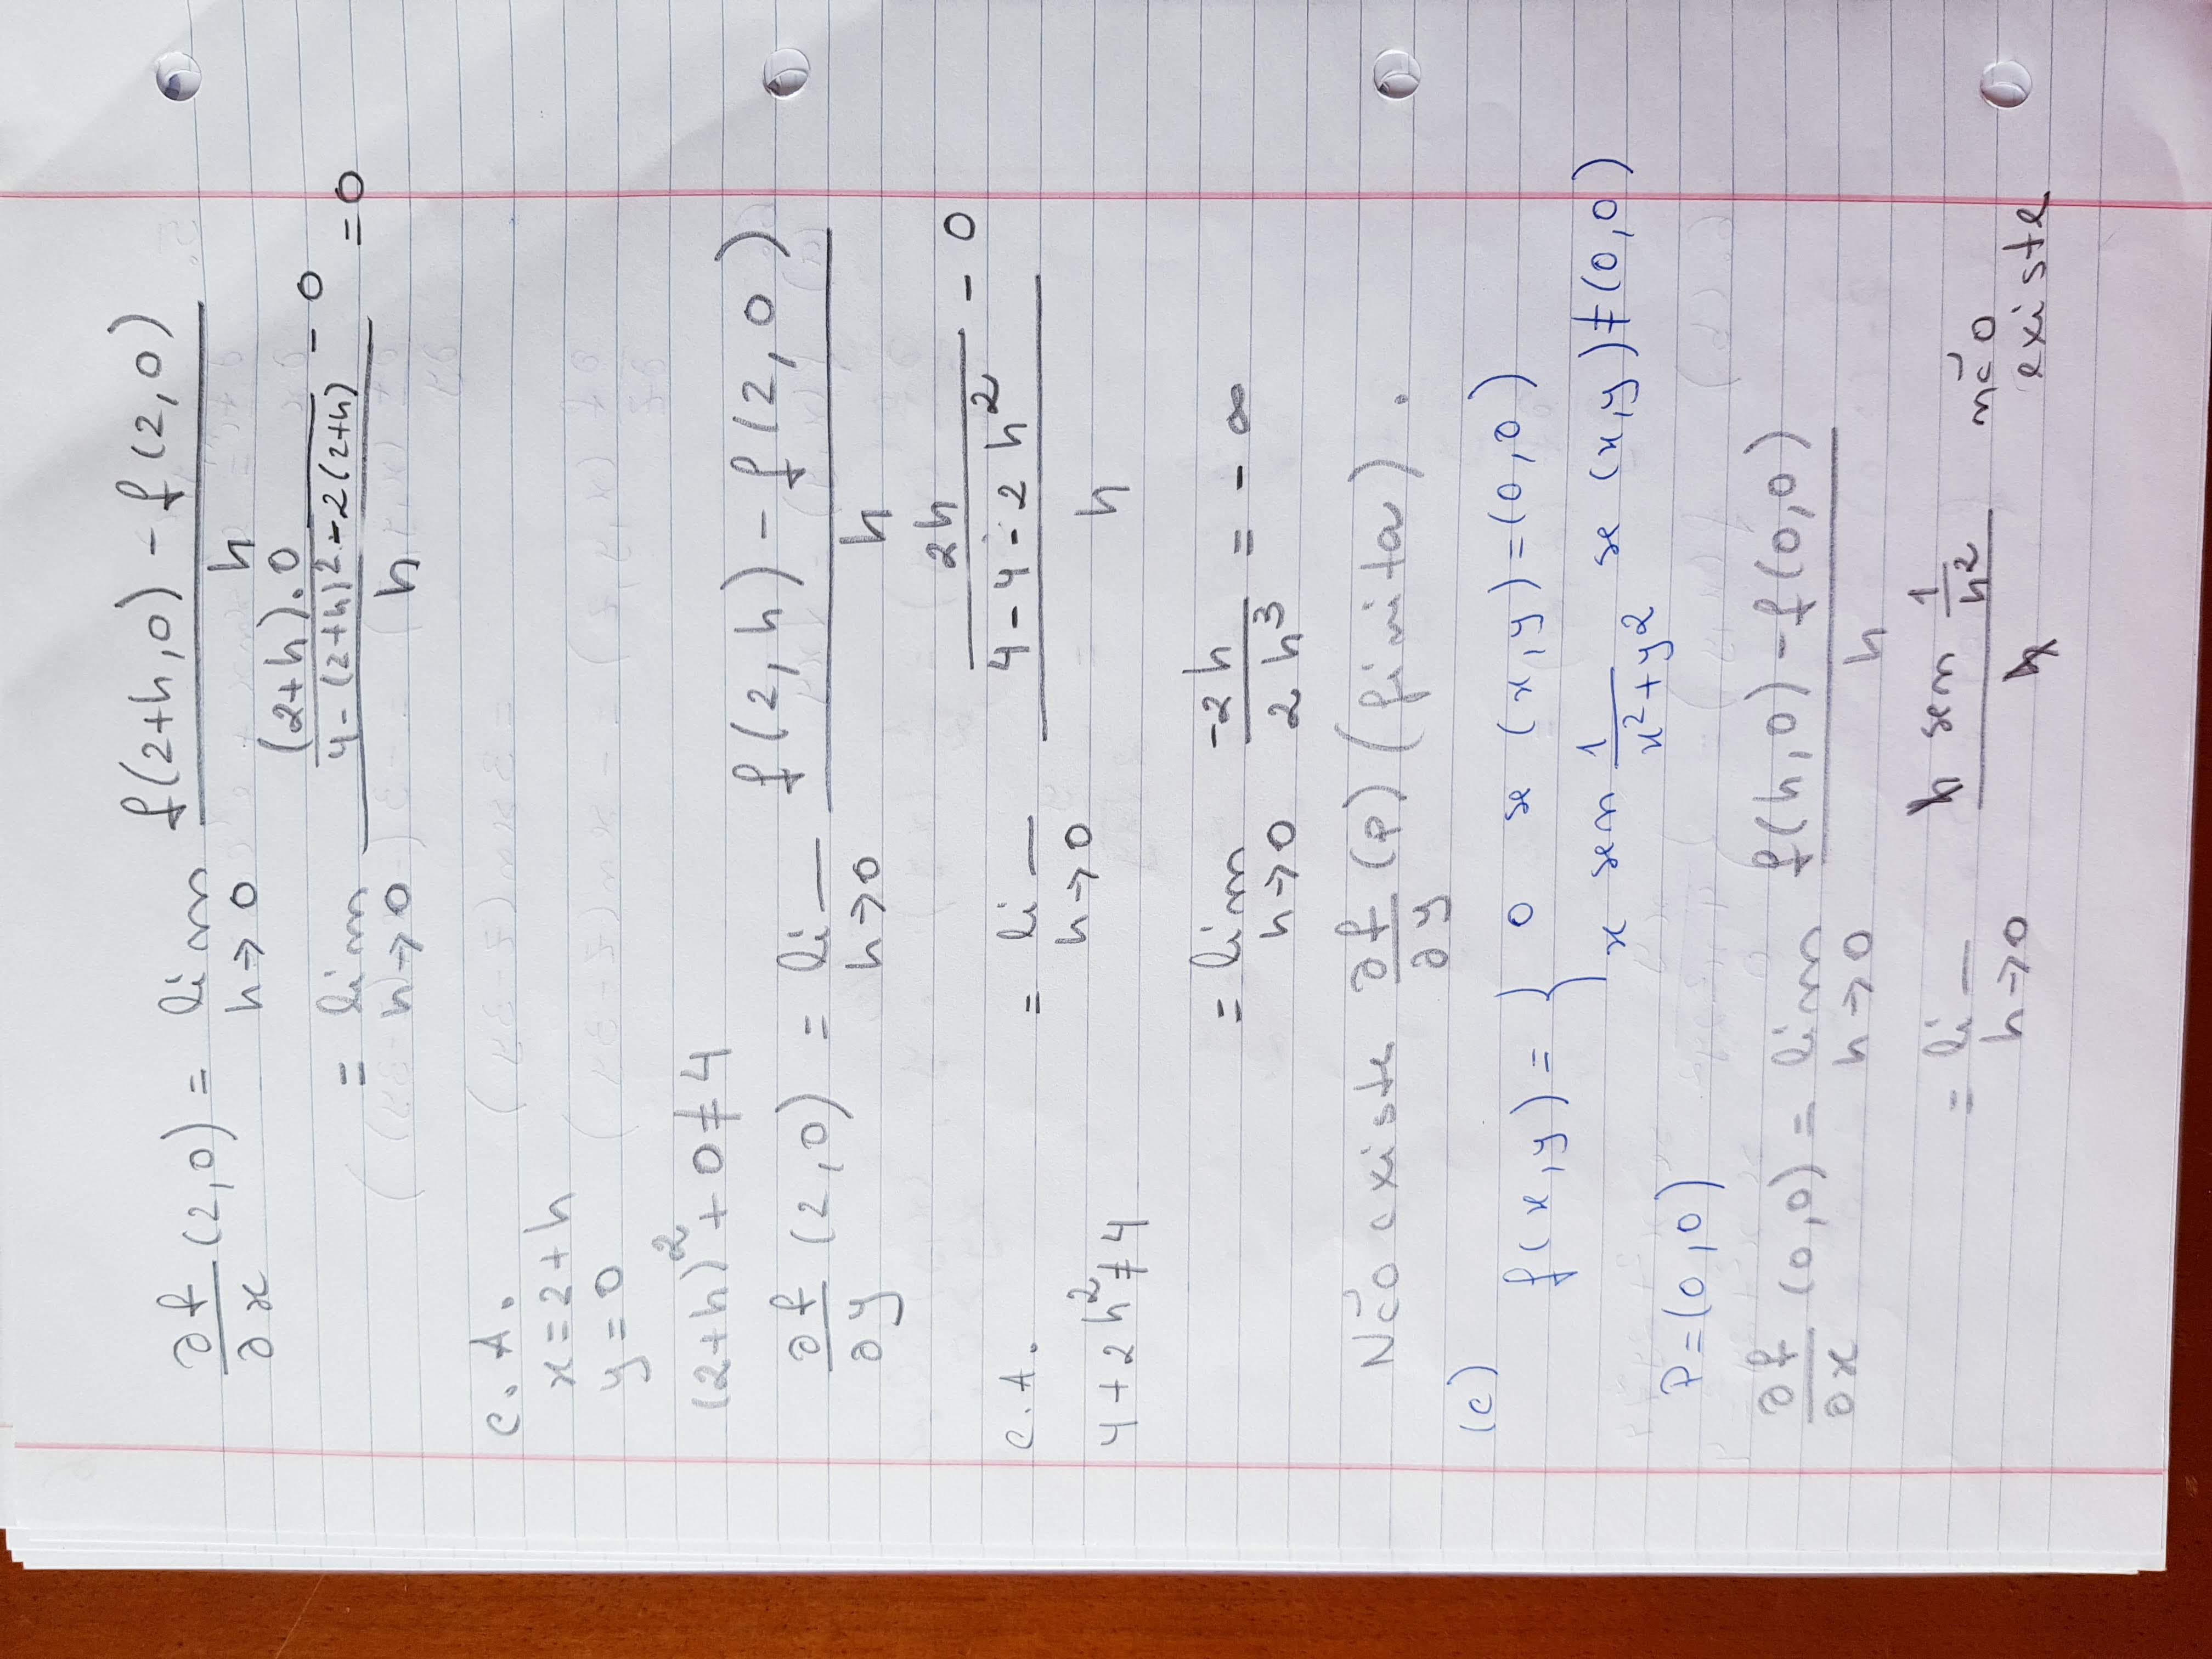 ∂f/∂x (2,0) = lim h→0 (f(2+h,0) - f(2,0)) / h
= lim h→0 ((2+h).0 / (4-(2+h)²-2(2+h)) - 0) / h = 0
C.A.
x=2+h
y=0
(2+h)²+0≠4
∂f/∂y (2,0) = lim h→0 (f(2,h) - f(2,0)) / h
= lim h→0 (2h / (4-4-2h²) - 0) / h
C.A.
4+2h²≠4
= lim h→0 -2h / 2h³ = -∞
Não existe ∂f/∂y (P) (finita).
(c)
f(x,y) = { 0 se (x,y)=(0,0)
x sen 1/(x²+y²) se (x,y)≠(0,0)
P=(0,0)
∂f/∂x (0,0) = lim h→0 (f(h,0) - f(0,0)) / h
= lim h→0 (h sen 1/h²) / h não
existe